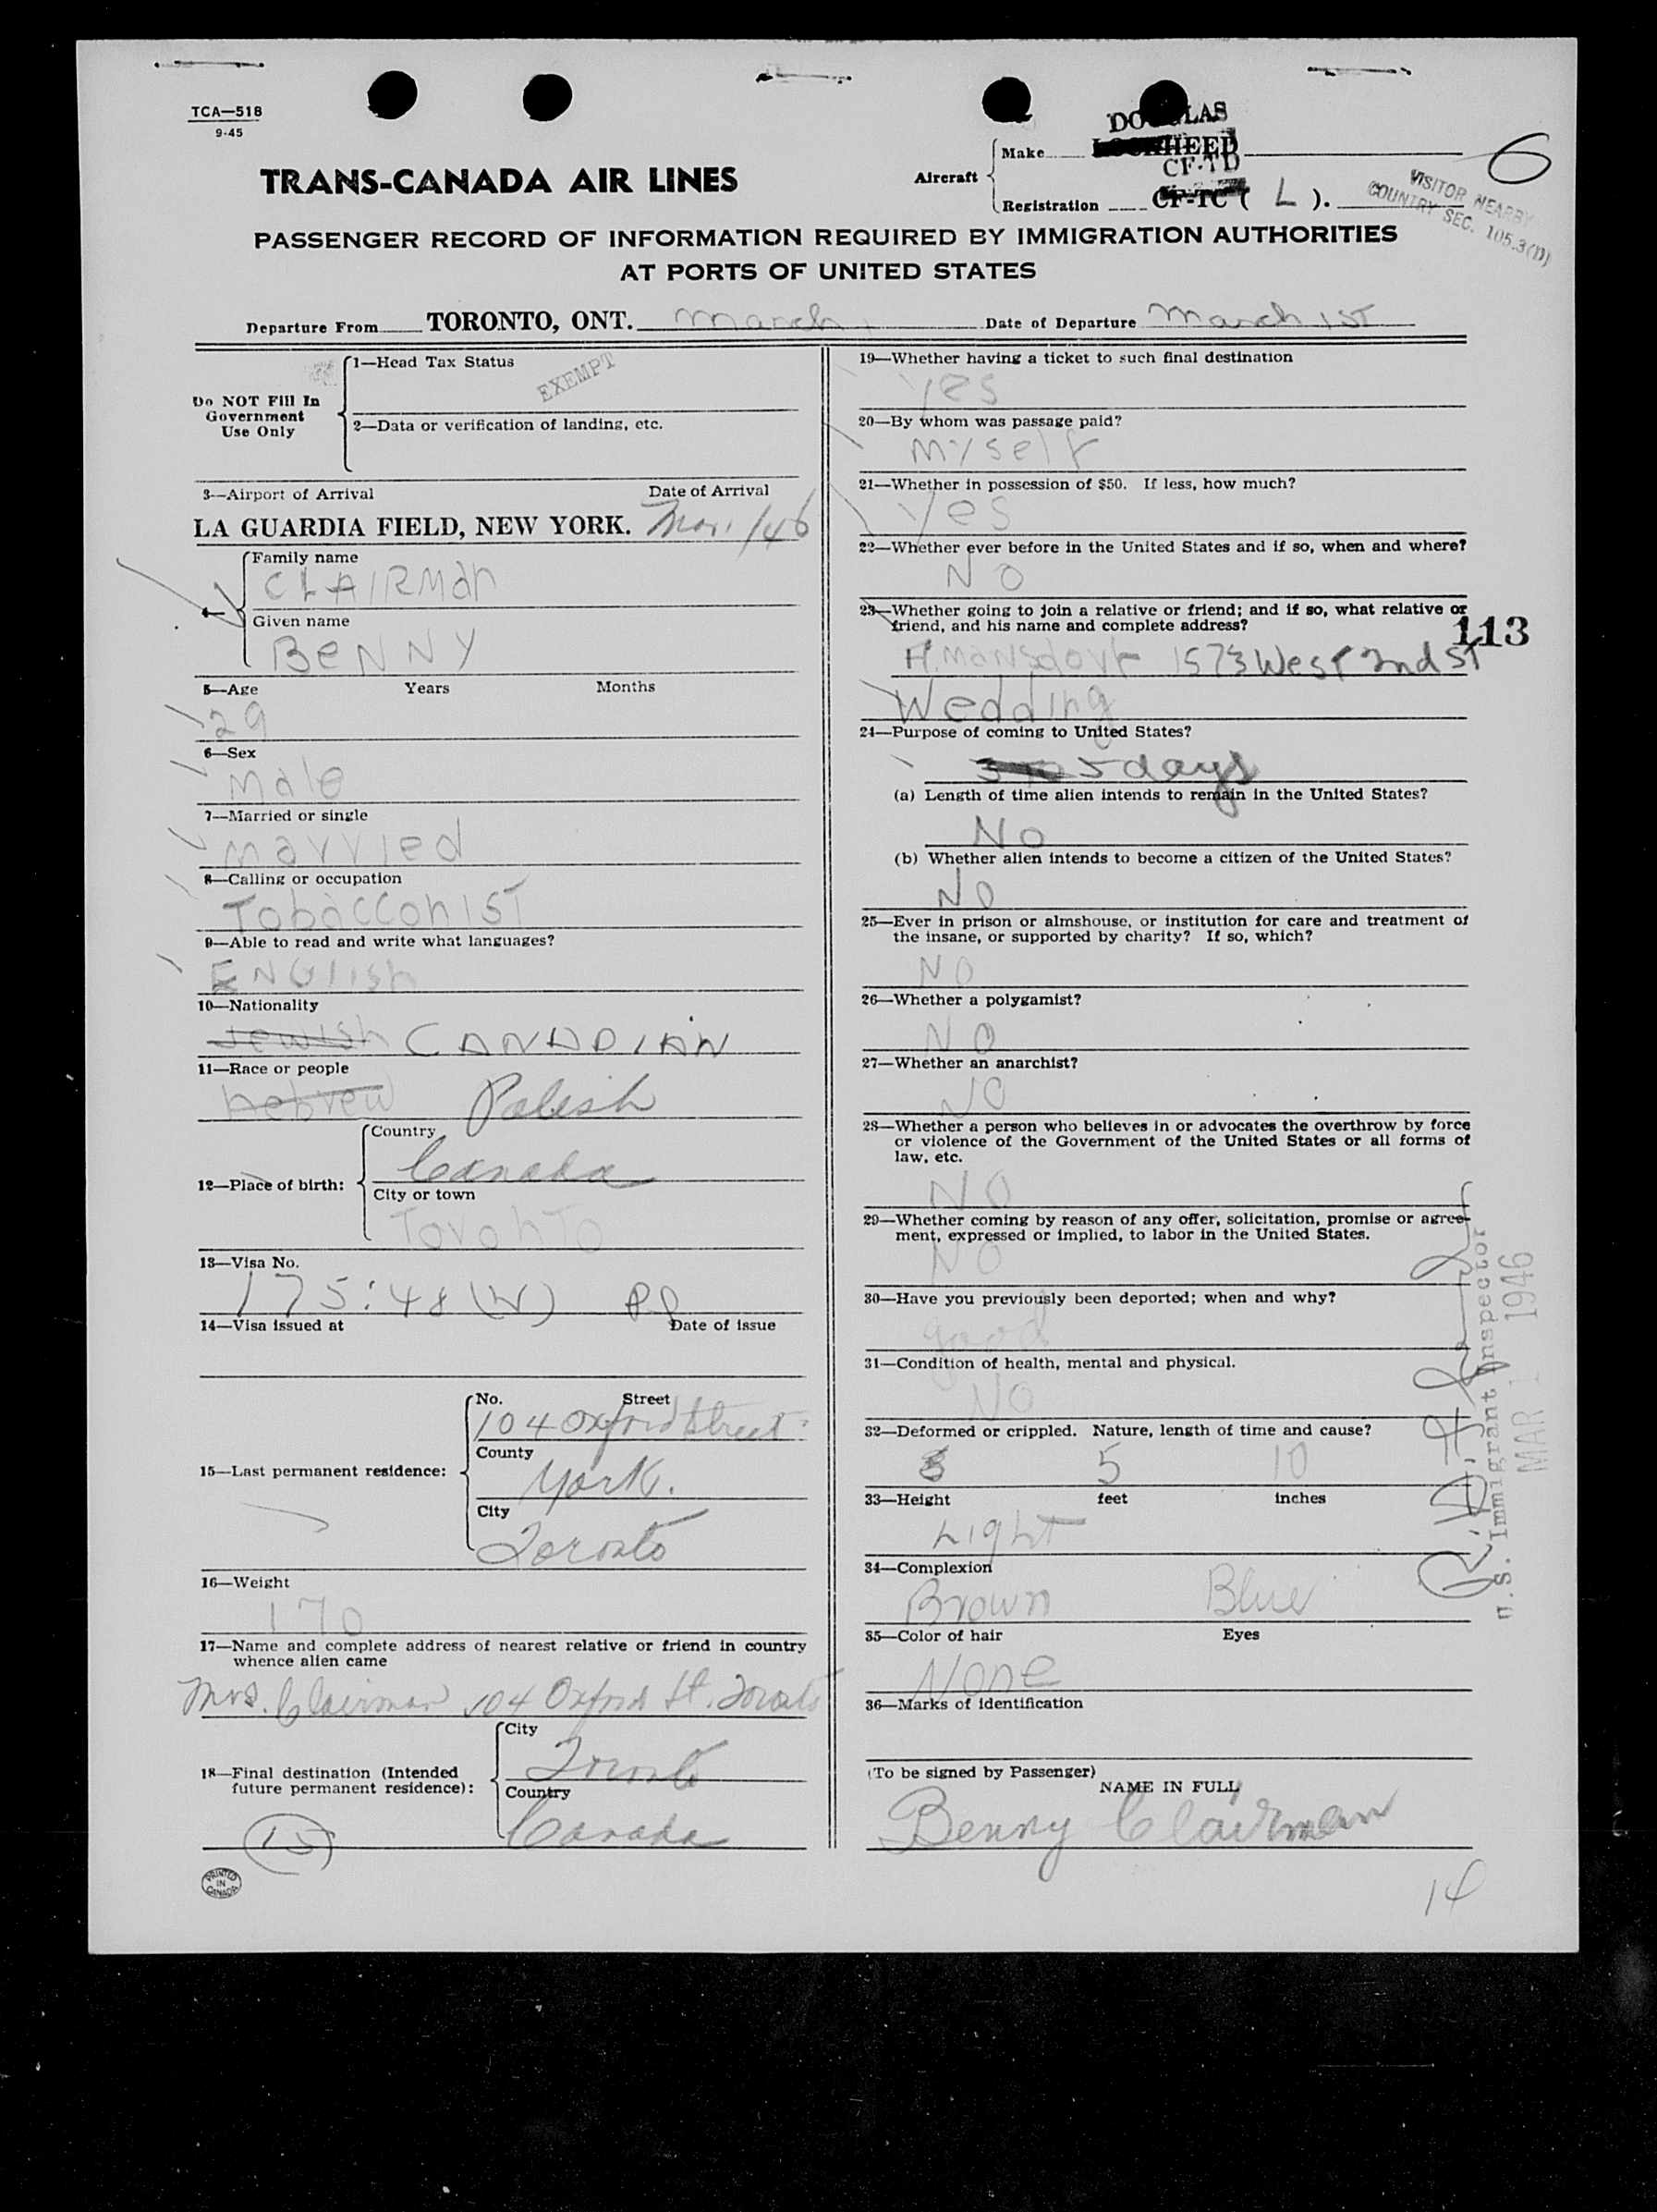 TCA—518
9-45
DOUGLAS
Make LOCKHEED
CF-TD
Aircraft
Registration CF-TC ( L ).
6
VISITOR NEARBY
COUNTRY SEC. 105.3(D)
TRANS-CANADA AIR LINES
PASSENGER RECORD OF INFORMATION REQUIRED BY IMMIGRATION AUTHORITIES
AT PORTS OF UNITED STATES
Departure From TORONTO, ONT. March Date of Departure March 1ST
Do NOT Fill In
Government
Use Only
1—Head Tax Status
EXEMPT
2—Data or verification of landing, etc.
3—Airport of Arrival Date of Arrival
LA GUARDIA FIELD, NEW YORK. Mar. 1/46
4—
Family name
CLAIRMAN
Given name
BENNY
5—Age Years Months
29
6—Sex
Male
7—Married or single
married
8—Calling or occupation
TobacconIST
9—Able to read and write what languages?
ENGlish
10—Nationality
Jewish CANADIAN
11—Race or people
hebrew Polish
12—Place of birth:
Country
Canada
City or town
ToronTo
13—Visa No.
175:48 (W) PP
14—Visa issued at Date of issue
15—Last permanent residence:
No. Street
104 Oxford Street
County
York.
City
Toronto
16—Weight
170
17—Name and complete address of nearest relative or friend in country
whence alien came
Mrs. Clairman 104 Oxford St. Toronto
18—Final destination (Intended
future permanent residence):
City
Toronto
Country
Canada
(15)
PRINTED
IN
CANADA
19—Whether having a ticket to such final destination
Yes
20—By whom was passage paid?
Myself
21—Whether in possession of $50. If less, how much?
Yes
22—Whether ever before in the United States and if so, when and where?
NO
23—Whether going to join a relative or friend; and if so, what relative or
friend, and his name and complete address?
113
1573 West 2nd ST
Wedding
24—Purpose of coming to United States?
5 days
(a) Length of time alien intends to remain in the United States?
No
(b) Whether alien intends to become a citizen of the United States?
NO
25—Ever in prison or almshouse, or institution for care and treatment of
the insane, or supported by charity? If so, which?
NO
26—Whether a polygamist?
NO
27—Whether an anarchist?
NO
28—Whether a person who believes in or advocates the overthrow by force
or violence of the Government of the United States or all forms of
law, etc.
NO
29—Whether coming by reason of any offer, solicitation, promise or agree-
ment, expressed or implied, to labor in the United States.
NO
30—Have you previously been deported; when and why?
good
31—Condition of health, mental and physical.
NO
32—Deformed or crippled. Nature, length of time and cause?
5 10
33—Height feet inches
Light
34—Complexion
Brown Blue
35—Color of hair Eyes
None
36—Marks of identification
(To be signed by Passenger)
NAME IN FULL
Benny Clairman
U.S. Immigrant Inspector
MAR 1 1946
14